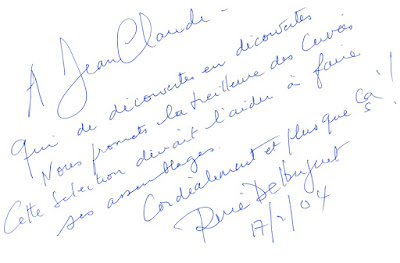 A Jean Claude -
qui de découvertes en découvertes
Nous promets la treilleure des Cuvées
Cette Selection devrait l'aider à faire
ses assemblages
Cordialement et plus que ça !
René
17/2/04